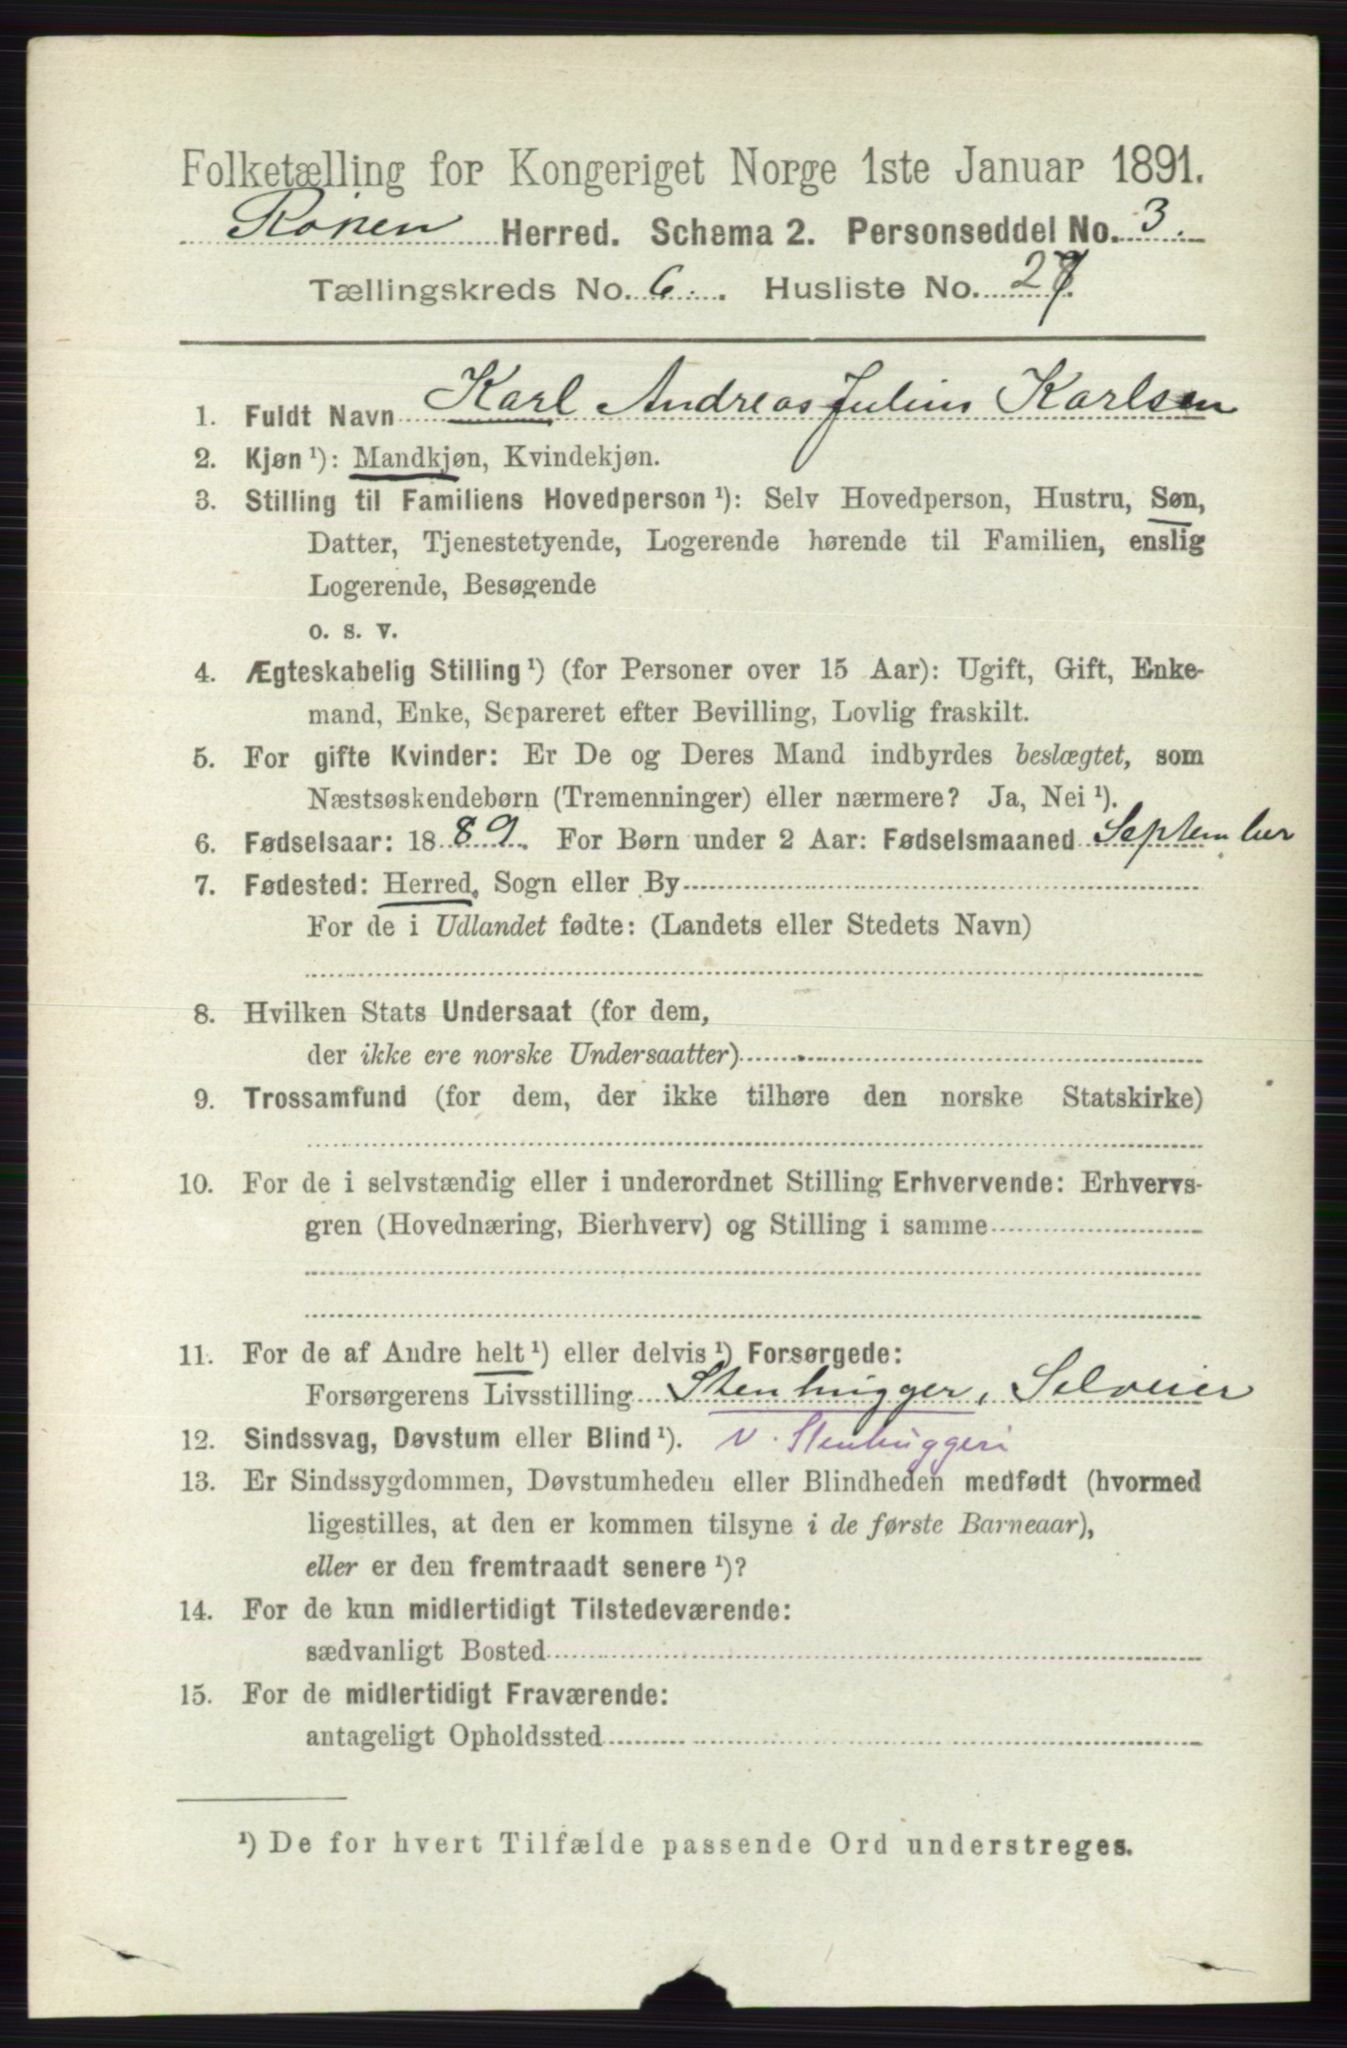 Folketælling for Kongeriget Norge 1ste Januar 1891.
Röken Herred. Schema 2. Personseddel No. 3.
Tællingskreds No. 6. Husliste No. 27.
1. Fuldt Navn Karl Andreas Julius Karlsen
2. Kjøn ¹): Mandkjøn, Kvindekjøn.
3. Stilling til Familiens Hovedperson ¹): Selv Hovedperson, Hustru, Søn,
Datter, Tjenestetyende, Logerende hørende til Familien, enslig
Logerende, Besøgende
o. s. v.
4. Ægteskabelig Stilling ¹) (for Personer over 15 Aar): Ugift, Gift, Enke-
mand, Enke, Separeret efter Bevilling, Lovlig fraskilt.
5. For gifte Kvinder: Er De og Deres Mand indbyrdes beslægtet, som
Næstsøskendebørn (Tremenninger) eller nærmere? Ja, Nei ¹).
6. Fødselsaar: 1889. For Børn under 2 Aar: Fødselsmaaned September
7. Fødested: Herred, Sogn eller By
For de i Udlandet fødte: (Landets eller Stedets Navn)
8. Hvilken Stats Undersaat (for dem,
der ikke ere norske Undersaatter)
9. Trossamfund (for dem, der ikke tilhøre den norske Statskirke)
10. For de i selvstændig eller i underordnet Stilling Erhvervende: Erhvervs-
gren (Hovednæring, Bierhverv) og Stilling i samme
11. For de af Andre helt ¹) eller delvis ¹) Forsørgede:
Forsørgerens Livsstilling Stenhugger, Selveier
12. Sindssvag, Døvstum eller Blind ¹). v. Stenhuggeri
13. Er Sindssygdommen, Døvstumheden eller Blindheden medfødt (hvormed
ligestilles, at den er kommen tilsyne i de første Barneaar),
eller er den fremtraadt senere ¹)?
14. For de kun midlertidigt Tilstedeværende:
sædvanligt Bosted
15. For de midlertidigt Fraværende:
antageligt Opholdssted
¹) De for hvert Tilfælde passende Ord understreges.